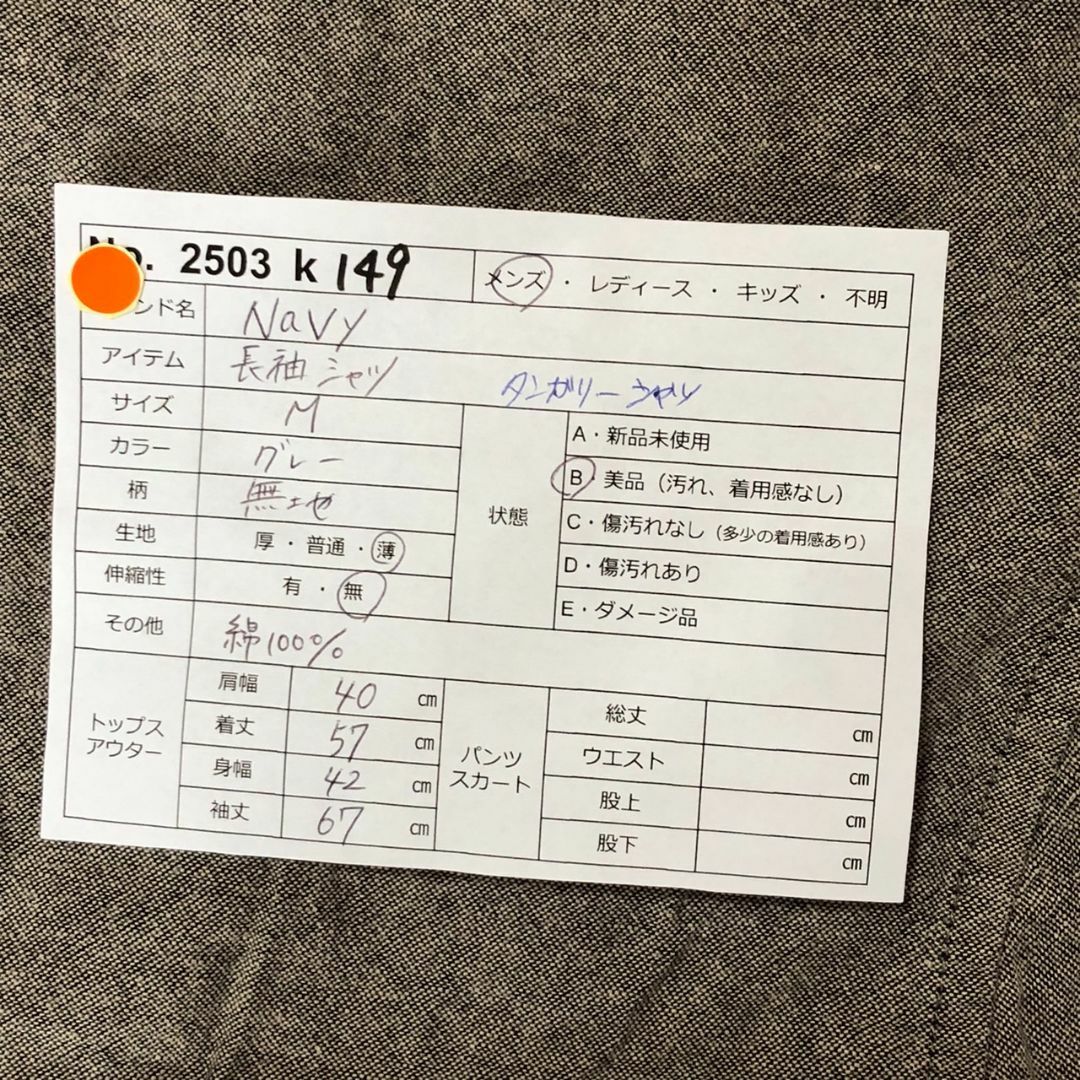 No. 2503 k 149
メンズ ・ レディース ・ キッズ ・ 不明
ンド名 Navy
アイテム 長袖シャツ ダンガリーシャツ
サイズ M
カラー グレー
柄 無地
生地 厚・普通・薄
伸縮性 有・無
その他 綿100%
状態
A・新品未使用
B・美品（汚れ、着用感なし）
C・傷汚れなし（多少の着用感あり）
D・傷汚れあり
E・ダメージ品
トップス
アウター
肩幅 40 cm
着丈 57 cm
身幅 42 cm
袖丈 67 cm
パンツ
スカート
総丈 cm
ウエスト cm
股上 cm
股下 cm